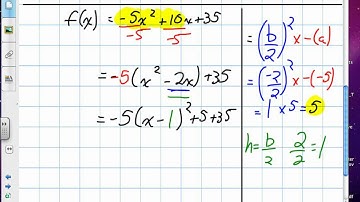 f(x) = -5x² + 10x + 35
-5 -5
= -5(x² - 2x) + 35
= -5(x - 1)² + 5 + 35
= (b/2)² x -(a)
= (-2/2)² x -(-5)
= 1 x 5 = 5
h = b/2 2/2 = 1